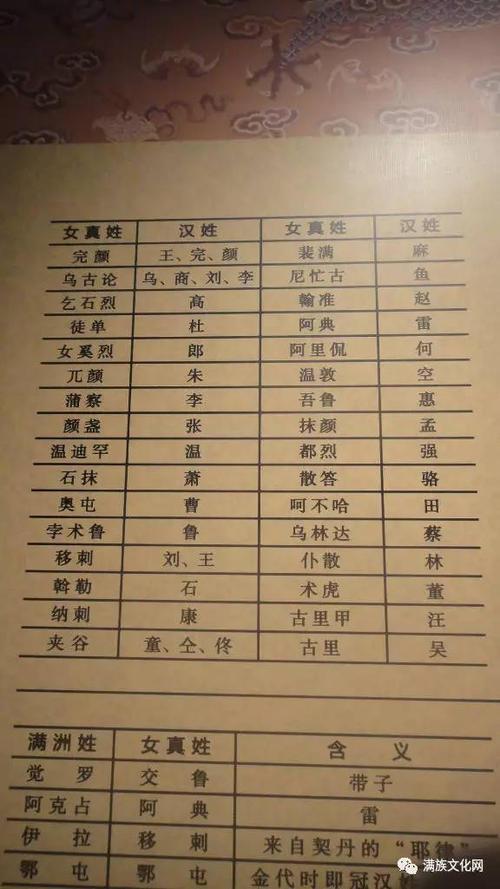 女真姓 汉姓 女真姓 汉姓
完颜 王、完、颜 裴满 麻
乌古论 乌、商、刘、李 尼忙古 鱼
乞石烈 高 翰准 赵
徒单 杜 阿典 雷
女奚烈 郎 阿里侃 何
兀颜 朱 温敦 空
蒲察 李 吾鲁 惠
颜盏 张 抹颜 孟
温迪罕 温 都烈 强
石抹 萧 散答 骆
奥屯 曹 呵不哈 田
孛术鲁 鲁 乌林达 蔡
移刺 刘、王 仆散 林
斡勒 石 术虎 董
纳刺 康 古里甲 汪
夹谷 童、仝、佟 古里 吴
满洲姓 女真姓 含义
觉罗 交鲁 带子
阿克占 阿典 雷
伊拉 移刺 来自契丹的“耶律”
鄂屯 鄂屯 金代时即冠汉
满族文化网